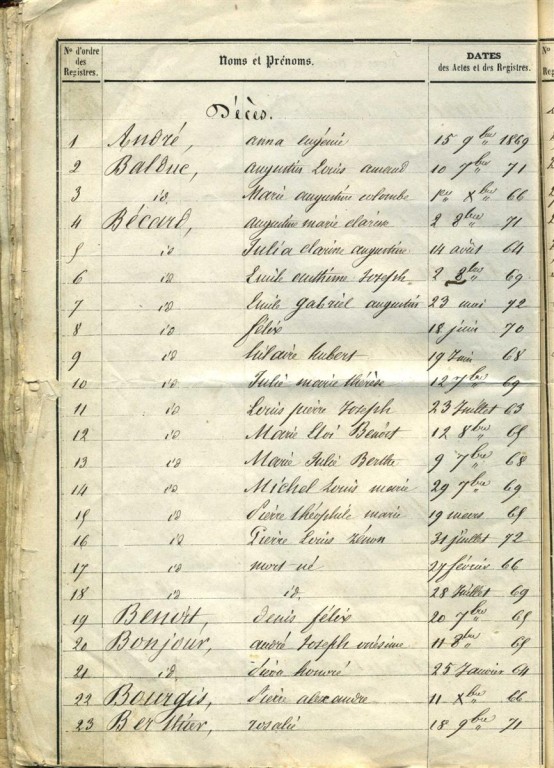 N° d'ordre des Registres. Noms et Prénoms. DATES des Actes et des Registres.
Décès.
1 André, anna eugénie 15 9bre 1869
2 Balduc, augustin Louis amand 10 7bre 71
3 id. Marie augustine colombe 1er Xbre 66
4 Bécard, augustine marie clarisse 2 8bre 71
5 id Julia clarisse augustine 14 août 64
6 id Emile Joseph 2 8bre 69
7 id Emile gabriel augustin 23 mai 72
8 id félix 18 juin 70
9 id hilaire hubert 19 Juin 68
10 id Julie marie thérèse 12 7bre 69
11 id Louis pierre Joseph 23 Juillet 63
12 id Marie Eloi Benoît 12 8bre 65
13 id Marie Julie Berthe 9 7bre 68
14 id Michel Louis marie 29 7bre 69
15 id Pierre théophile marie 19 mars 65
16 id Pierre Louis zénon 31 juillet 72
17 id mort né 27 février 66
18 id id. 28 Juillet 69
19 Benoît, Denis félix 20 7bre 65
20 Bonjour, andré Joseph onésime 11 8bre 65
21 id. honoré 25 Janvier 64
22 Bourgis, Pierre alexandre 11 Xbre 66
23 Berthier, rosalie 18 9bre 71
N°
Reg